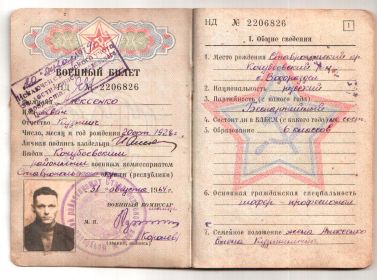 ВОЕННЫЙ БИЛЕТ
НД № 2206826
Алексенко
Иван
Отчество Кузьмич
Число, месяц и год рождения 20 окт 1928 г.
Личная подпись владельца
Выдан Кочубеевским
районным военным комиссариатом
Ставропольского края (республики)
31 августа 1964 г.
ВОЕННЫЙ КОМИССАР
М. П.
(Королев)
(звание, подпись)
НД № 2206826
1
I. Общие сведения
1. Место рождения Ставропольский кр
Кочубеевский р-н
2. Национальность русский
3. Партийность (с какого года)
Беспартийный
4. Состоит ли в ВЛКСМ (с какого года)
5. Образование 6 классов
6. Основная гражданская специальность
шофер
7. Семейное положение жена Алексенко